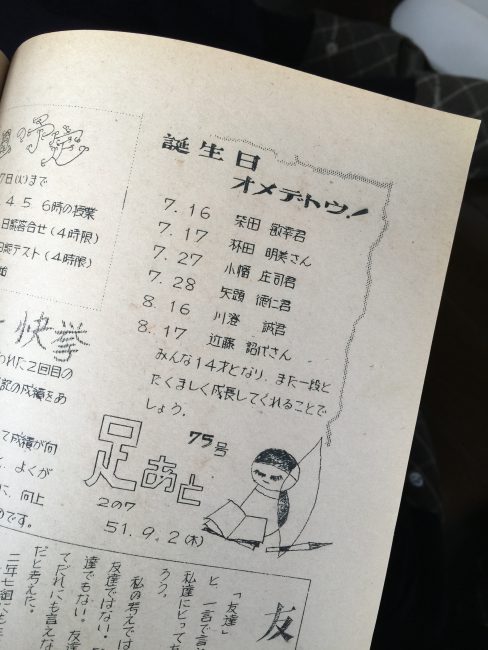 の予定
7日(火)まで
4 5 6時の授業
日認答合せ(4時限)
認テスト(4時限)
快挙
われた2回目の
記の成績をあ
て成績が向
、よくが
に、向上
のです。
誕生日
オメデトウ!
7.16 柴田 敏幸君
7.17 林田 明美さん
7.27 小幡 庄司君
7.28 矢頭 徳仁君
8.16 川澄 誠君
8.17 近藤 詔代さん
みんな14才となり、また一段と
たくましく成長してくれることで
しょう。
足あと
75号
2の7
51.9.2(木)
友
「友達」
と、一言で言
私達にとって
ろう。
私の考えでは
友達ではない。
達でもない。友達
てだれにも言えな
だと考えた。
二年七組にも